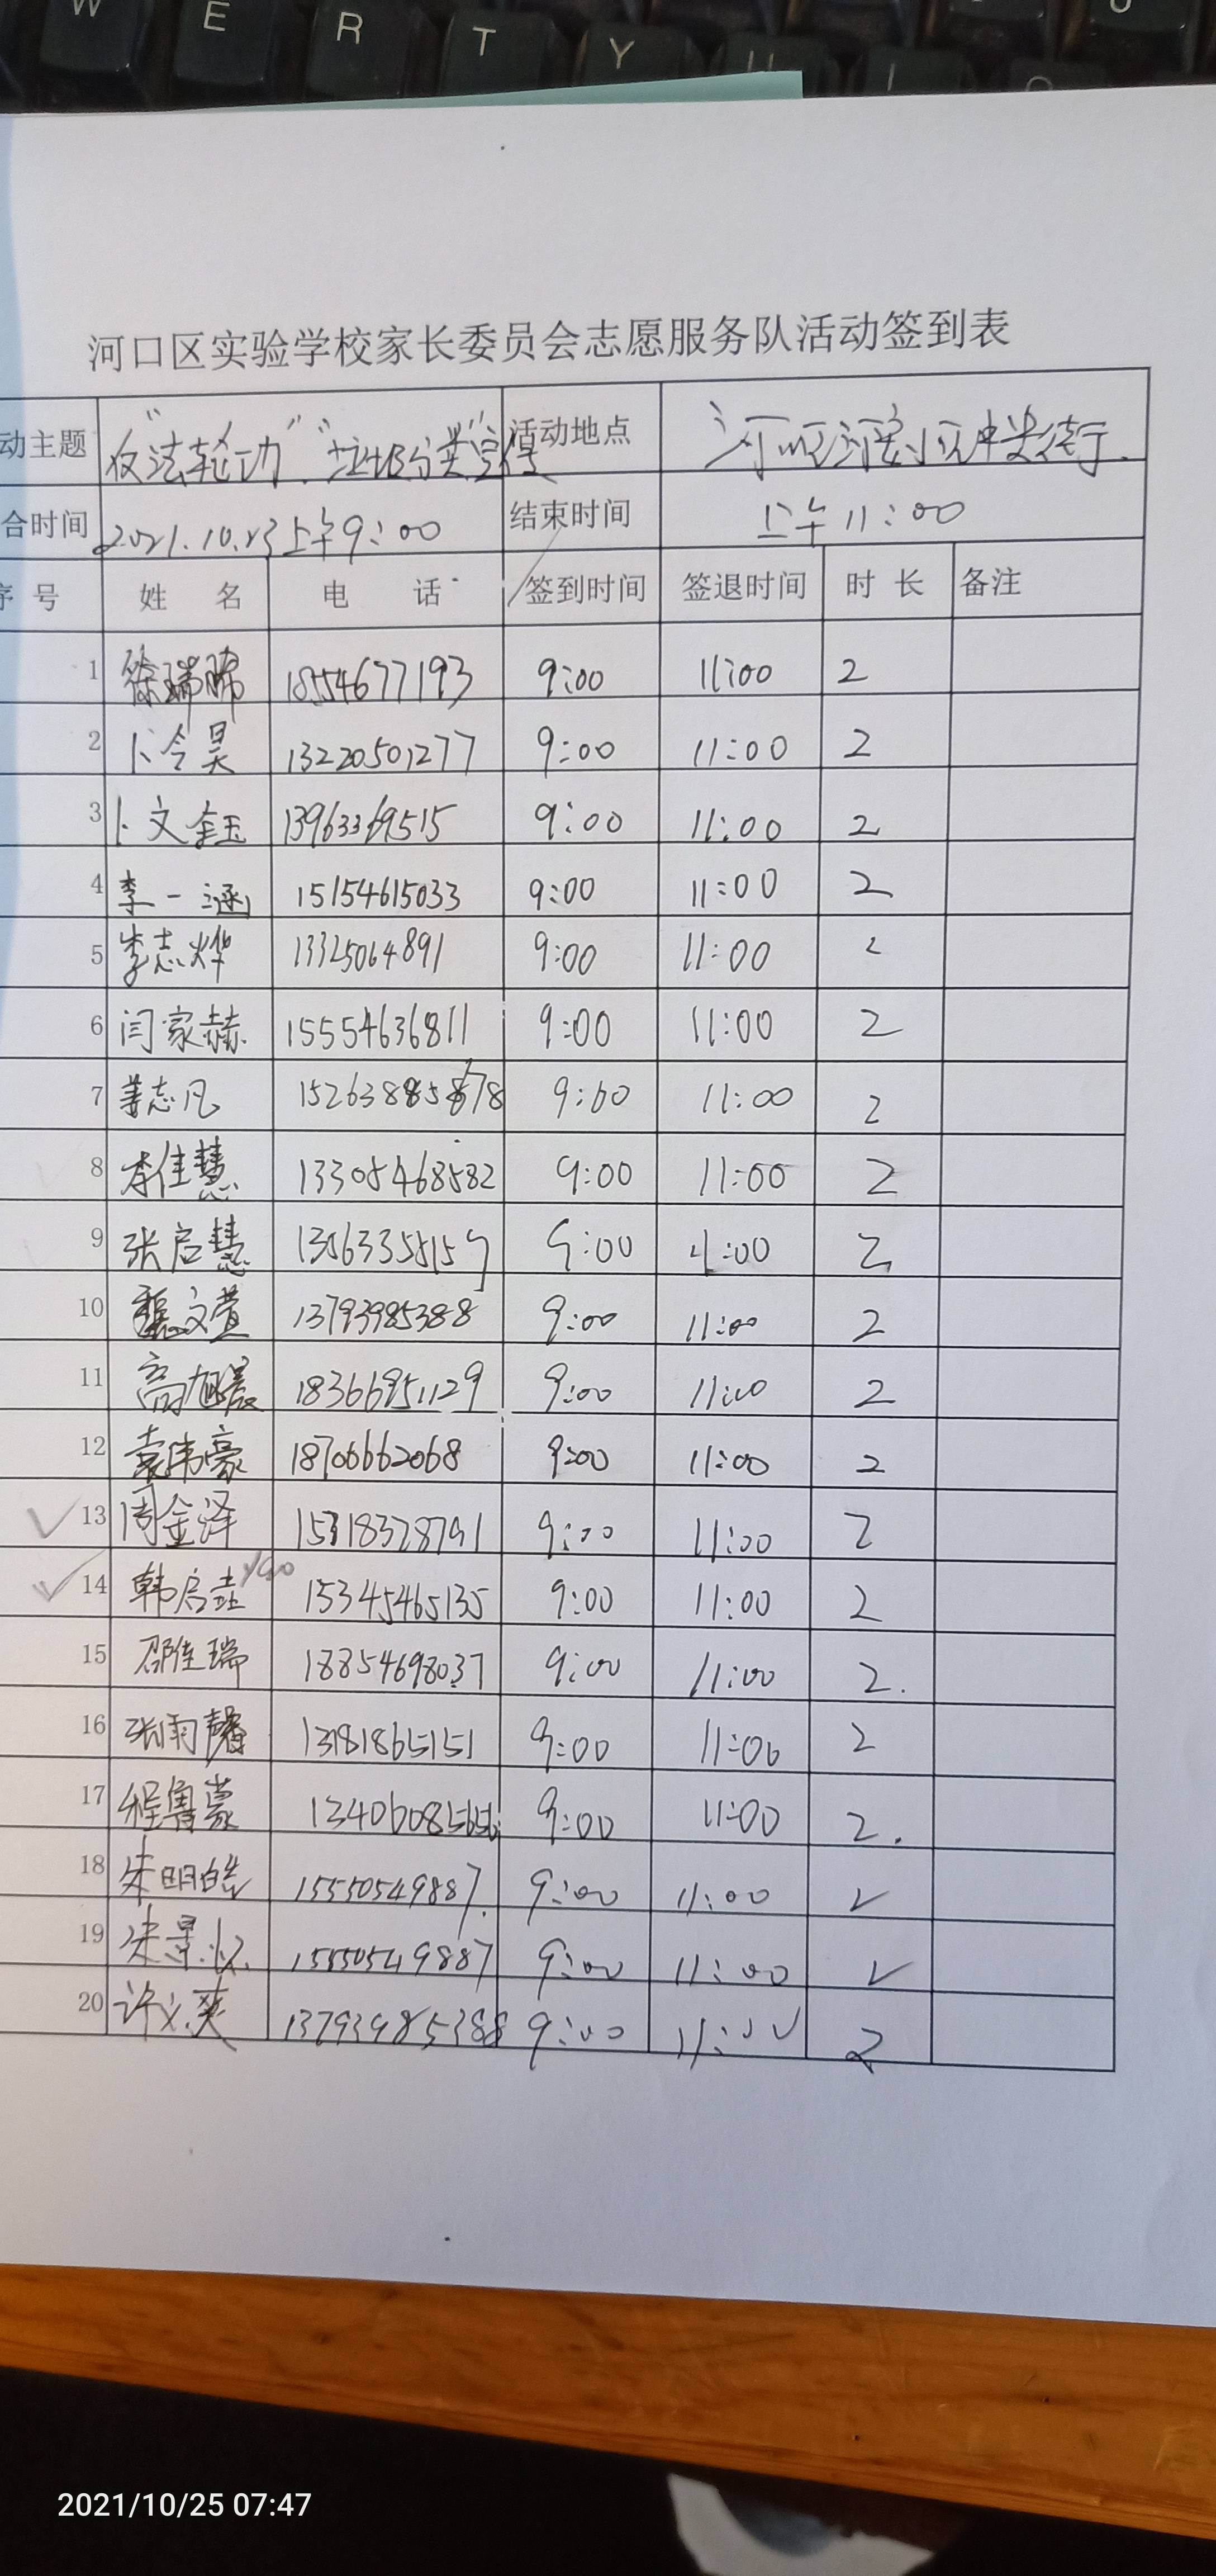 W E R T Y U I O
河口区实验学校家长委员会志愿服务队活动签到表
动主题 "反法轮功"."垃圾分类"宣传 活动地点
合时间 2021.10.23上午9:00 结束时间 上午11:00
序号 姓名 电话 签到时间 签退时间 时长 备注
1 徐瑞晞 18554677193 9:00 11:00 2
2 卜令昊 13220501277 9:00 11:00 2
3 卜文钰 13963369515 9:00 11:00 2
4 李一涵 15154615033 9:00 11:00 2
5 李志烨 13325064891 9:00 11:00 2
6 闫家赫 15554636811 9:00 11:00 2
7 姜志凡 9:00 11:00 2
8 李佳慧 13305468582 9:00 11:00 2
9 张启慧 9:00 11:00 2
10 魏文萱 13793985388 9:00 11:00 2
11 高旭晨 18366951129 9:00 11:00 2
12 袁伟豪 18706662068 9:00 11:00 2
13 周金泽 15318328791 9:00 11:00 2
14 韩启 15345465135 9:00 11:00 2
15 邵佳瑞 18854698037 9:00 11:00 2.
16 张雨馨 13181865151 9:00 11:00 2
17 程鲁蒙 9:00 11:00 2.
18 朱明皓 15550549887. 9:00 11:00 2
19 朱景 15550549887 9:00 11:00 2
20 许文爽 13793985388 9:00 11:00 2
2021/10/25 07:47